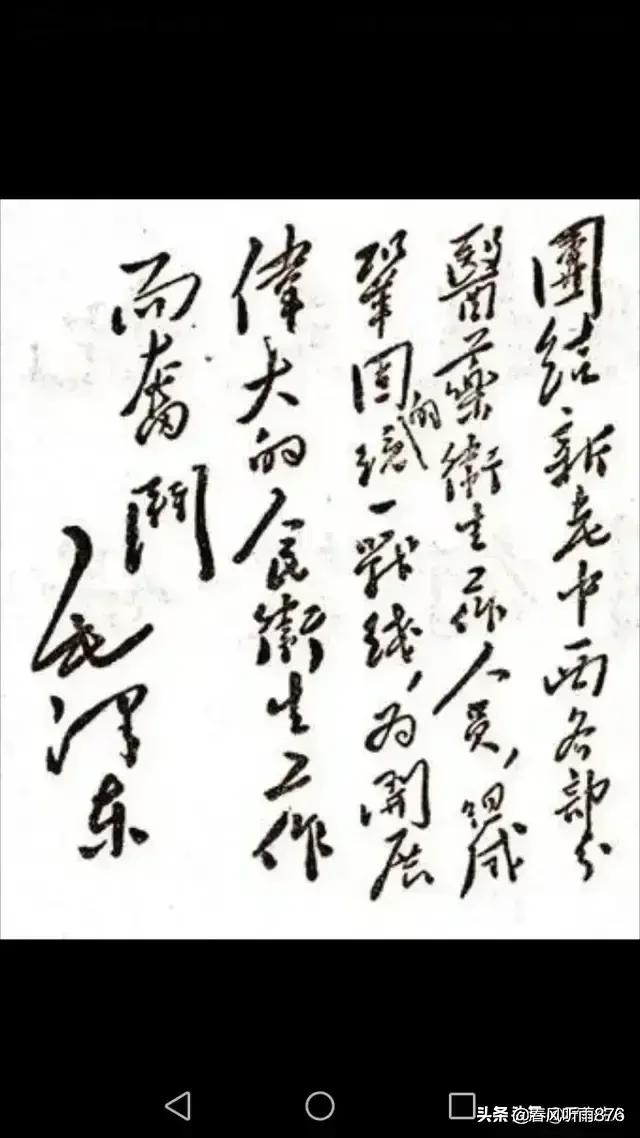 團結新老中西各部分
醫藥衛生工作人員,組成
鞏固的統一戰线,为開展
偉大的人民衛生工作
而奮鬥
毛泽东
头条 @春风听雨876